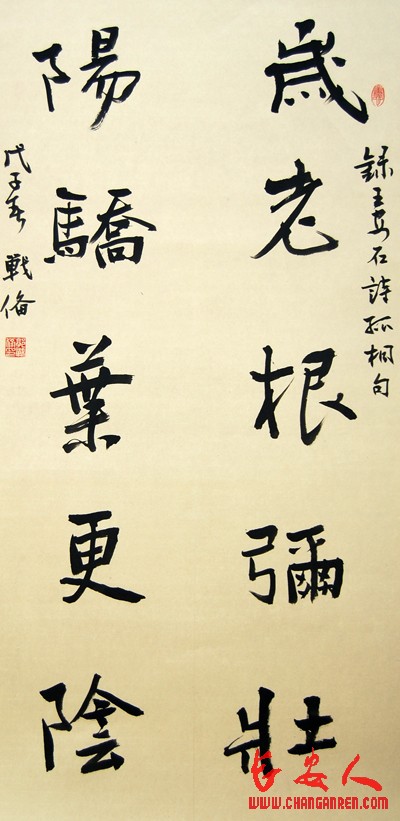 錄王安石詩孤桐句
歲老根彌壯
陽驕葉更陰
戊子春 戰
长安人
WWW.CHANGANREN.COM